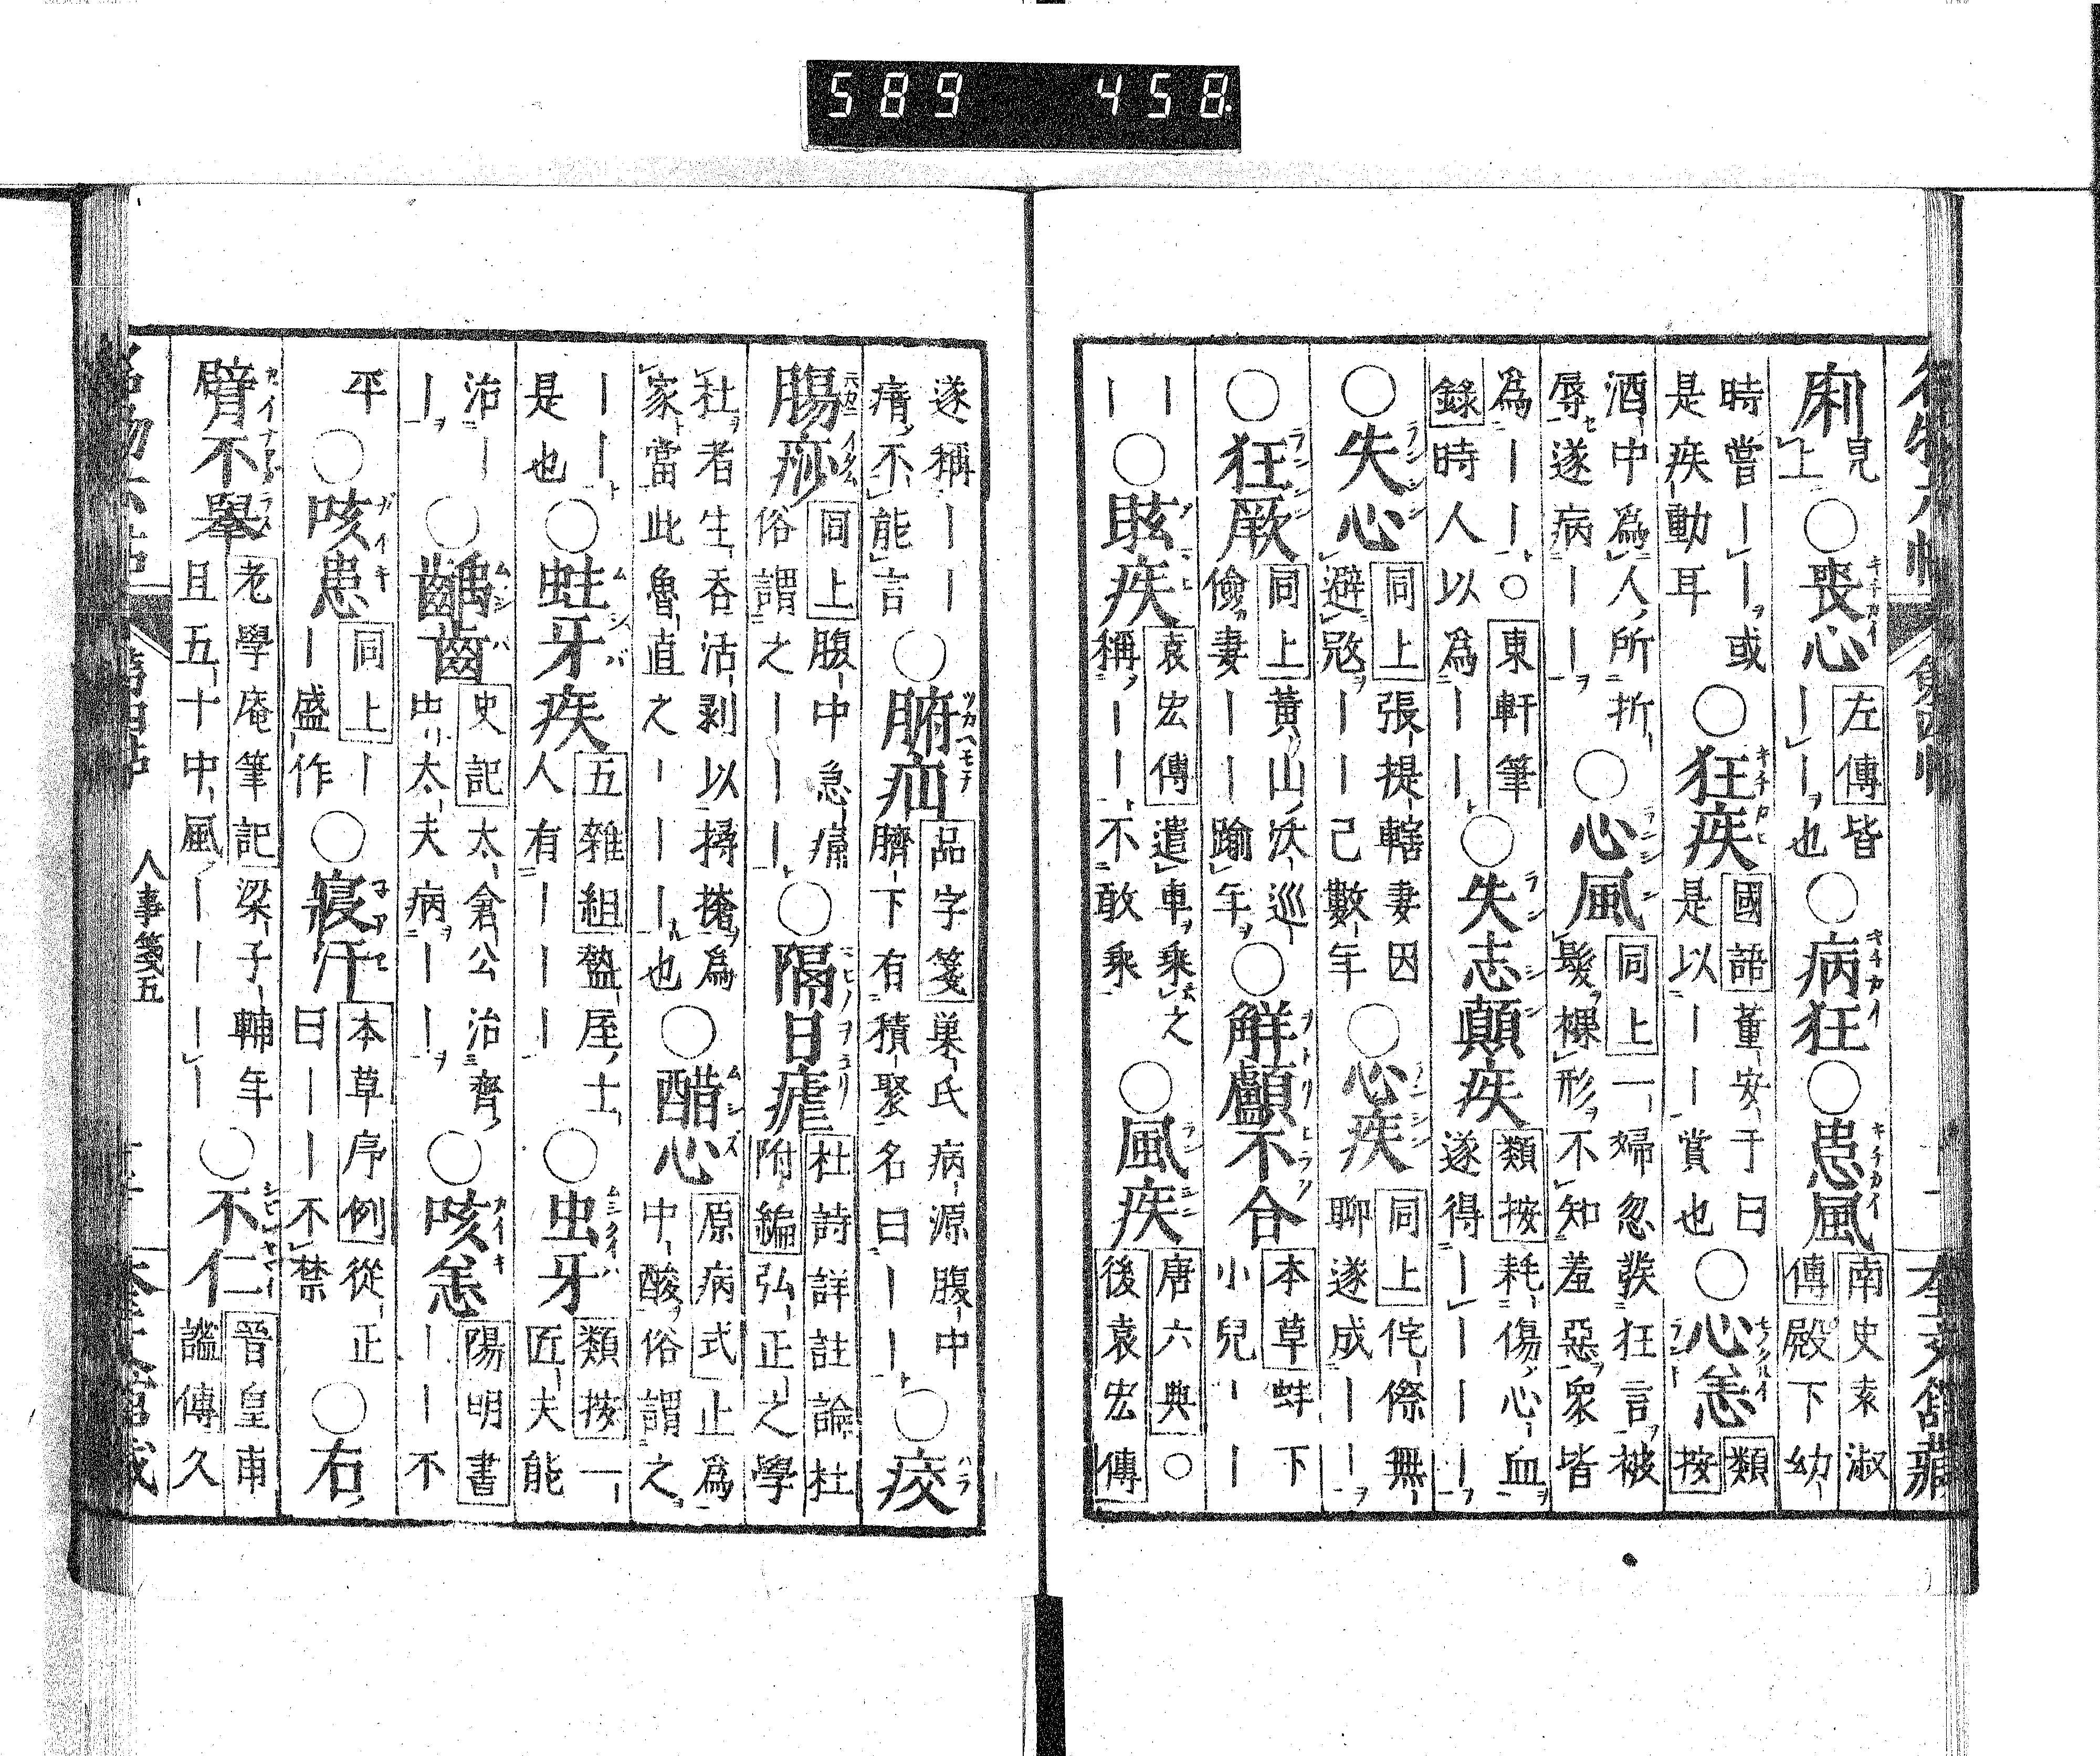 589 458
廁見上○喪心左傳皆｜｜也○病狂○患風南史袁淑傳殿下幼
時嘗｜｜或是疾動耳○狂疾國語董安于曰是以｜｜賞也○心恙類按
酒中爲人所折辱遂病｜｜○心風同上一婦忽發狂言被髮裸形不知羞惡衆皆
爲｜｜○東軒筆錄時人以爲｜｜○失志顛疾類按耗傷心血遂得｜｜｜｜
○失心同上張提轄妻因避寇｜｜己數年○心疾同上侘傺無聊遂成｜｜
○狂厥同上黃山沃巡儉妻｜｜踰年○解顱不合本草蚌下小兒｜｜
｜｜○眩疾袁宏傳遣車乘之稱｜｜不敢乘○風疾唐六典○後袁宏傳
遂稱｜｜瘖不能言○腑疝品字箋巢氏病源腹中臍下有積聚名曰｜｜○疫
腸痧同上腹中急痛俗謂之｜｜｜○隔日瘧杜詩詳註論杜附編弘正之學
杜者生吞活剥以撏撦爲家當此魯直之｜｜｜也○醋心原病式止爲中酸俗謂之
｜｜是也○蛀牙疾五雜組盩厔士人有｜｜｜○虫牙類按一匠夫能
治｜｜○齲齒史記太倉公治齊中太夫病｜｜○咳恙陽明書｜｜不
平○咳患同上｜｜盛作○寢汗本草序例從正曰｜｜不禁○右
臂不舉老學庵筆記梁子輔年且五十中風｜｜｜｜○不仁晉皇甫謐傳久
人事箋五